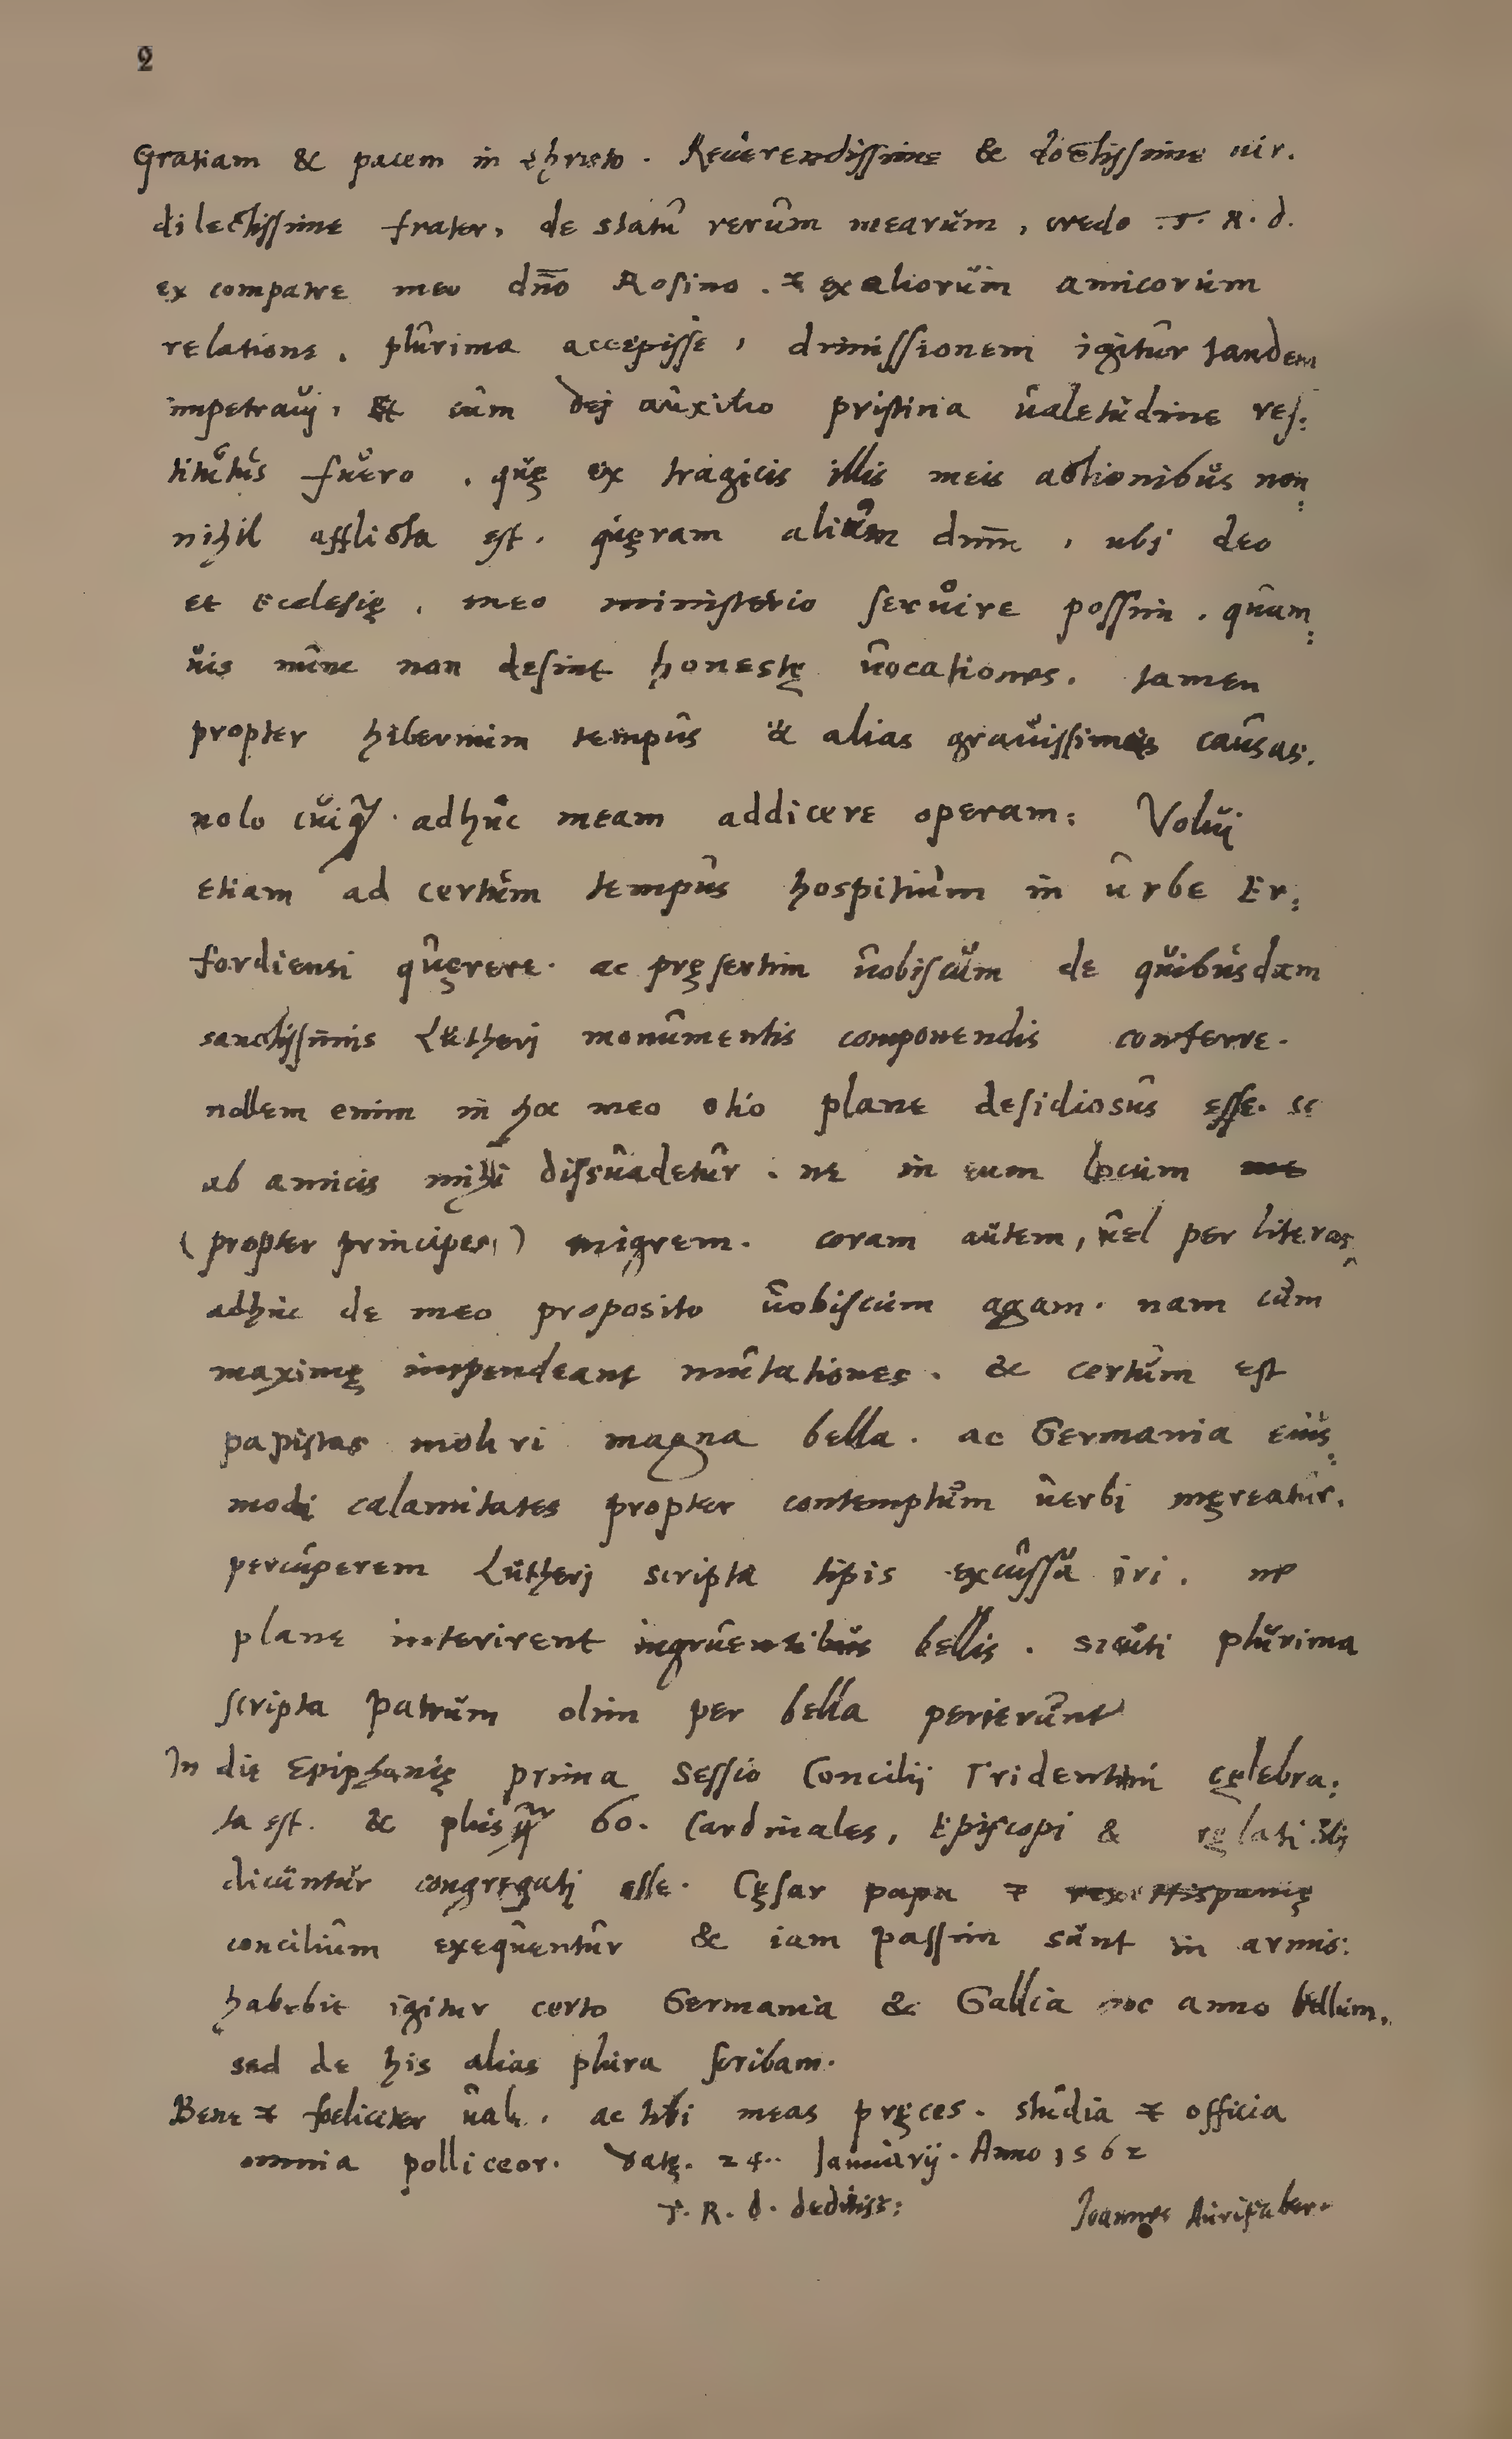 2
Gratiam & pacem in christo. Reuerendissime & doctissime uir.
dilectissime frater, de statu rerum mearum, credo T. R. d.
ex compatre meo dn̄o Rosino. & ex aliorum amicorum
relatione, plurima accepisse, dimissionem igitur tandem
impetrauj, Et cum dej auxilio pristina ualetudine res:
titutus fuero, quę ex tragicis illis meis actionibus non
nihil afflicta est. quęram alium dnm̄, ubj deo
et Ecclesię, meo ministerio seruire possim. quam:
uis nunc non desint honestę uocationes. tamen
propter hibernum tempus & alias grauissimas causas.
nolo cuiq̃ adhuc meam addicere operam: Voluj
etiam ad certum tempus hospitium in urbe Er:
fordiensi quęrere. ac pręsertim uobiscum de quibusdam
sanctissimis Lutherj monumentis componendis conferre.
nollem enim in hoc meo otio plane desidiosus esse.
ab amicis mihi dissuadetur. ne in eum locum
(propter principes) migrem. coram autem, uel per literas
adhuc de meo proposito uobiscum agam. nam cum
maximę impendeant mutationes. & certum est
papistas moliri magna bella. ac Germania eius:
modi calamitates propter contemptum uerbi męreatur.
percuperem Lutherj scripta tipis excussa iri. ne
plane interirent ingruentibus bellis. sicuti plurima
scripta patrum olim per bella perierunt
In die Epiphanię prima Sessio Concilij Tridentini cęlebra:
ta est. & plusq̃ 60. Cardinales, Episcopi &
dicuntur congregatj esse. Cęsar papa & rex Hispanię
concilium exequentur & iam passim sunt in armis:
habebit igitur certo Germania & Gallia hoc anno bellum.
sed de his alias plura scribam.
Bene & foeliciter uale. ac tibi meas pręces. studia & officia
omnia polliceor. datę. 24. Januarij. Anno 1562
T. R. d. deditiss:
Joannes Aurifaber.